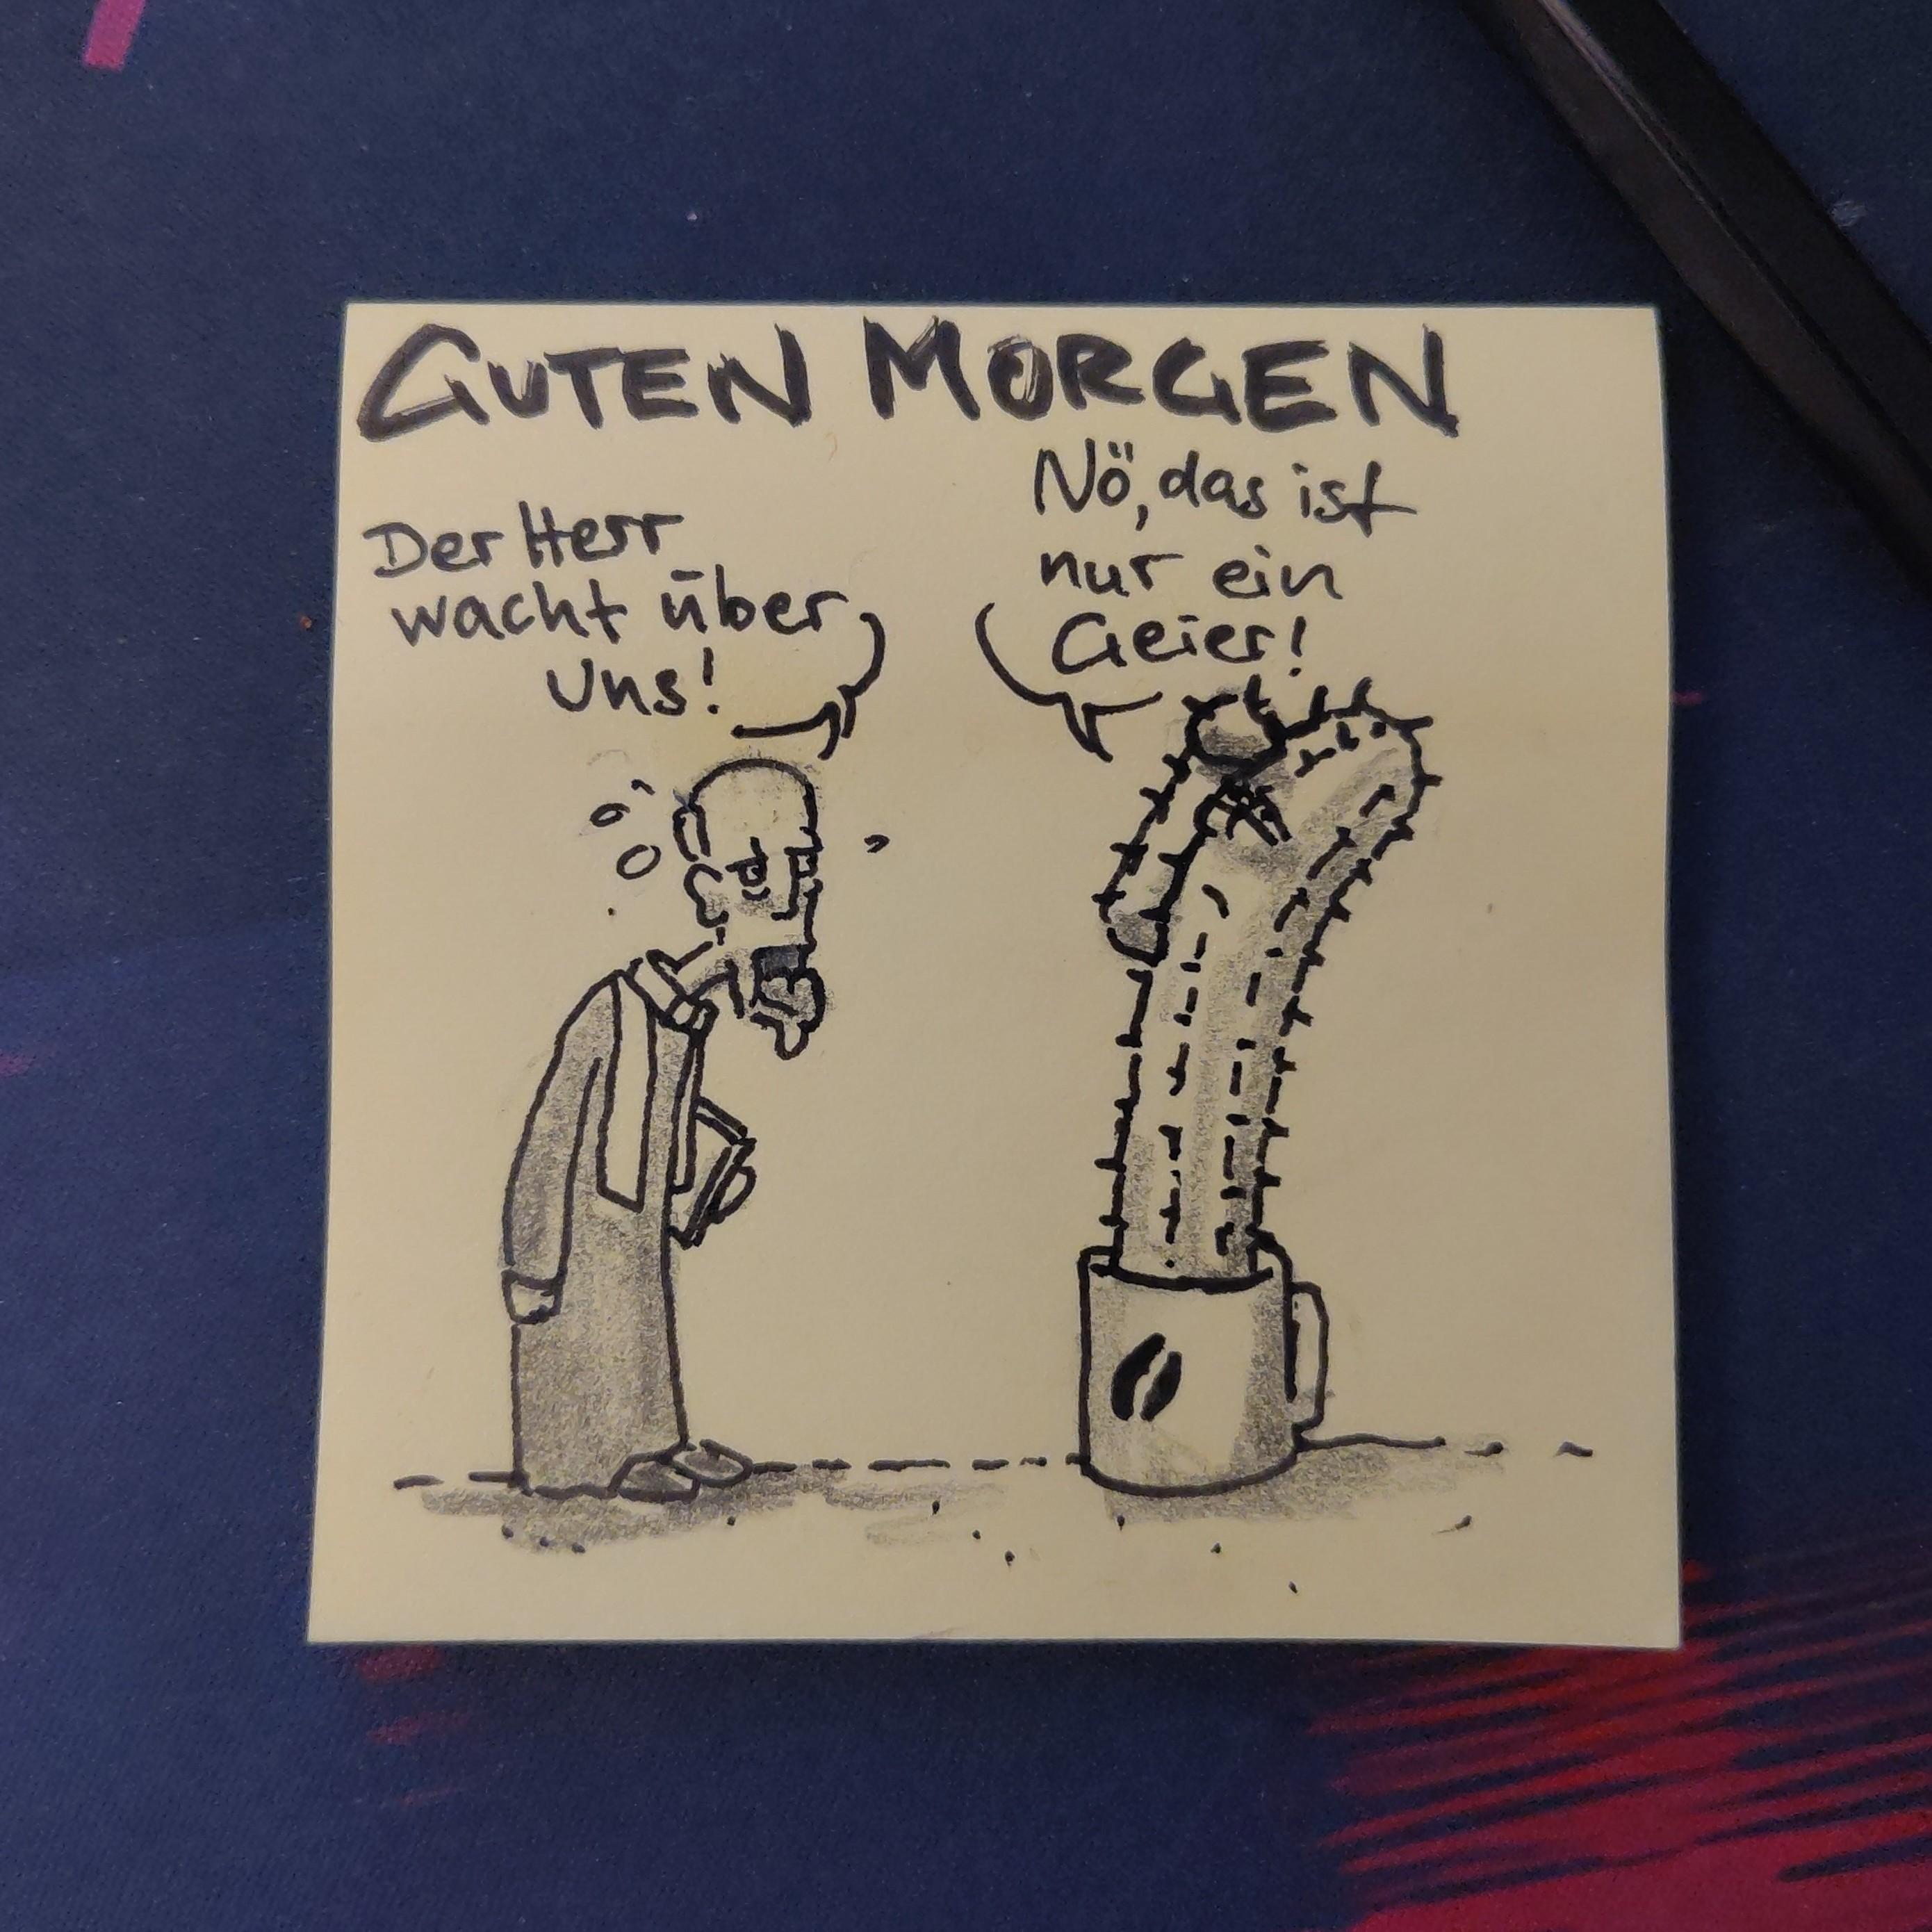 GUTEN MORGEN
Der Herr
wacht über
uns!
Nö, das ist
nur ein
Geier!